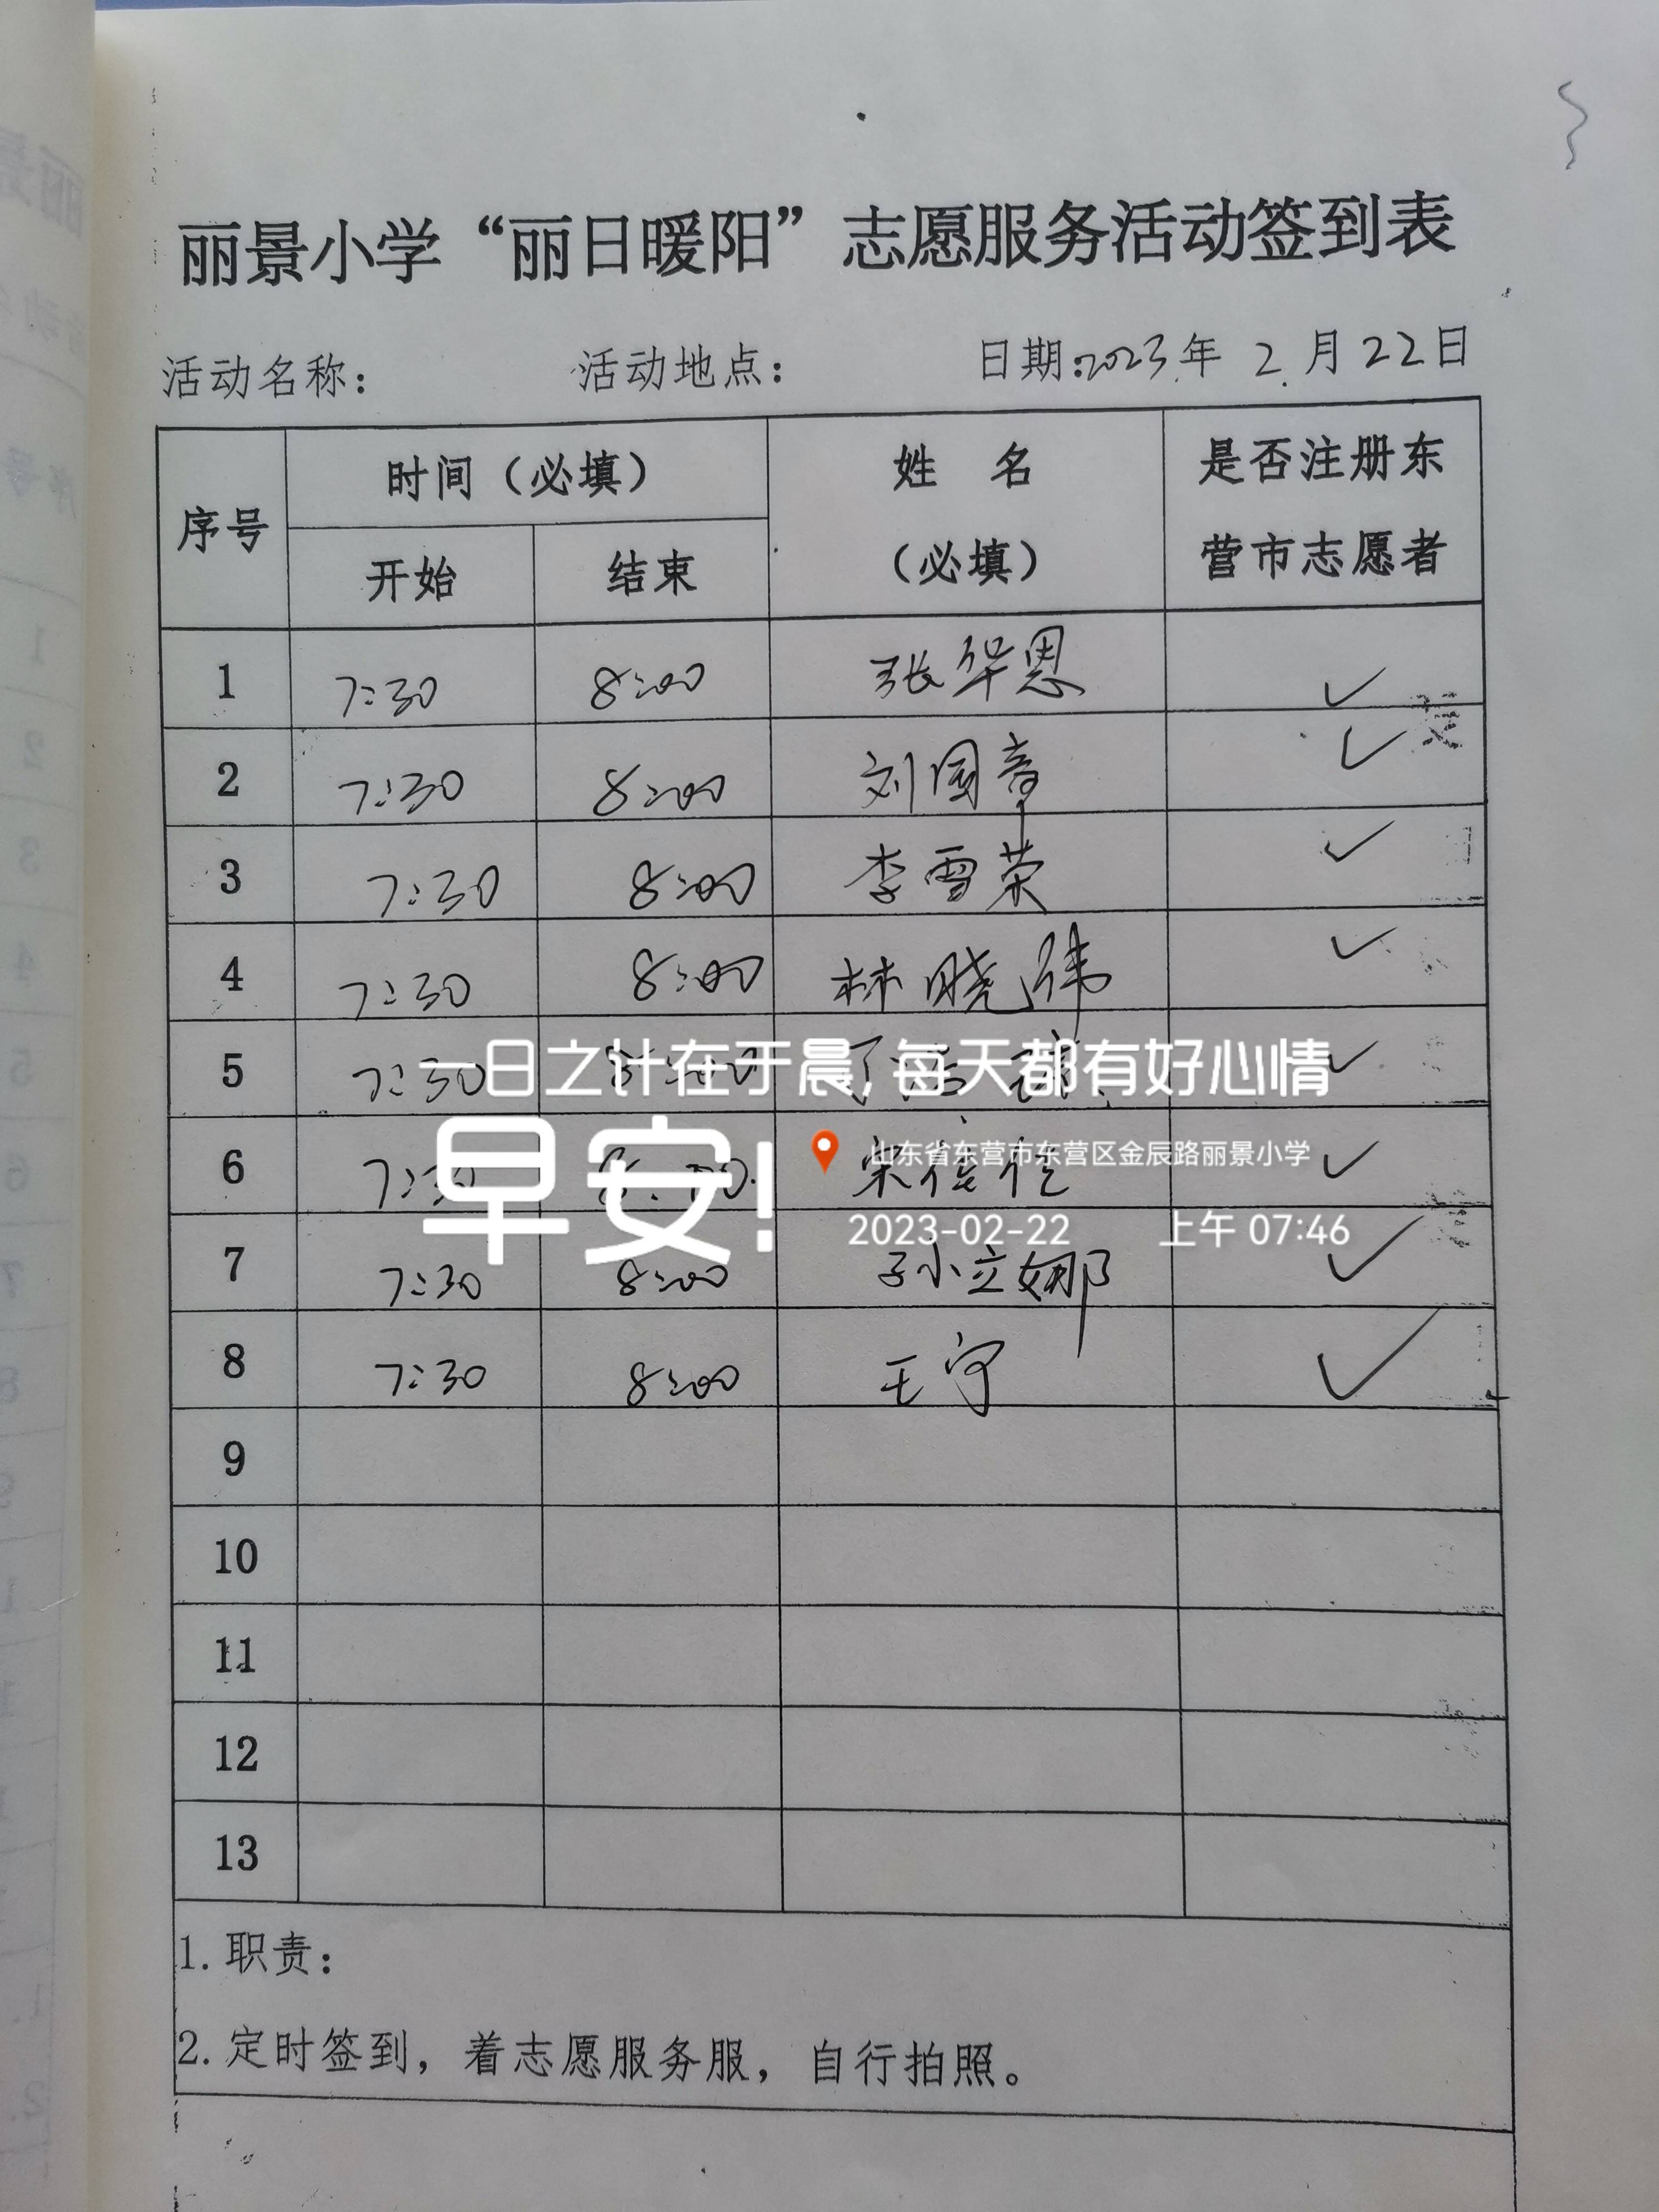 丽景小学“丽日暖阳”志愿服务活动签到表
活动名称： 活动地点： 日期：2023年 2月22日
序号 时间（必填） 姓 名（必填） 是否注册东营市志愿者
开始 结束
1 7:30 8:00 张华恩 ✓
2 7:30 8:00 刘国章 ✓
3 7:30 8:00 李雪荣 ✓
4 7:30 8:00 林晓伟 ✓
5 7:30 8:00 ✓
一日之计在于晨，每天都有好心情
早安！
山东省东营市东营区金辰路丽景小学
2023-02-22 上午 07:46
6 7:30 8:00 宋 ✓
7 7:30 8:00 孙立娜 ✓
8 7:30 8:00 王守 ✓
9
10
11
12
13
1. 职责：
2. 定时签到，着志愿服务服，自行拍照。